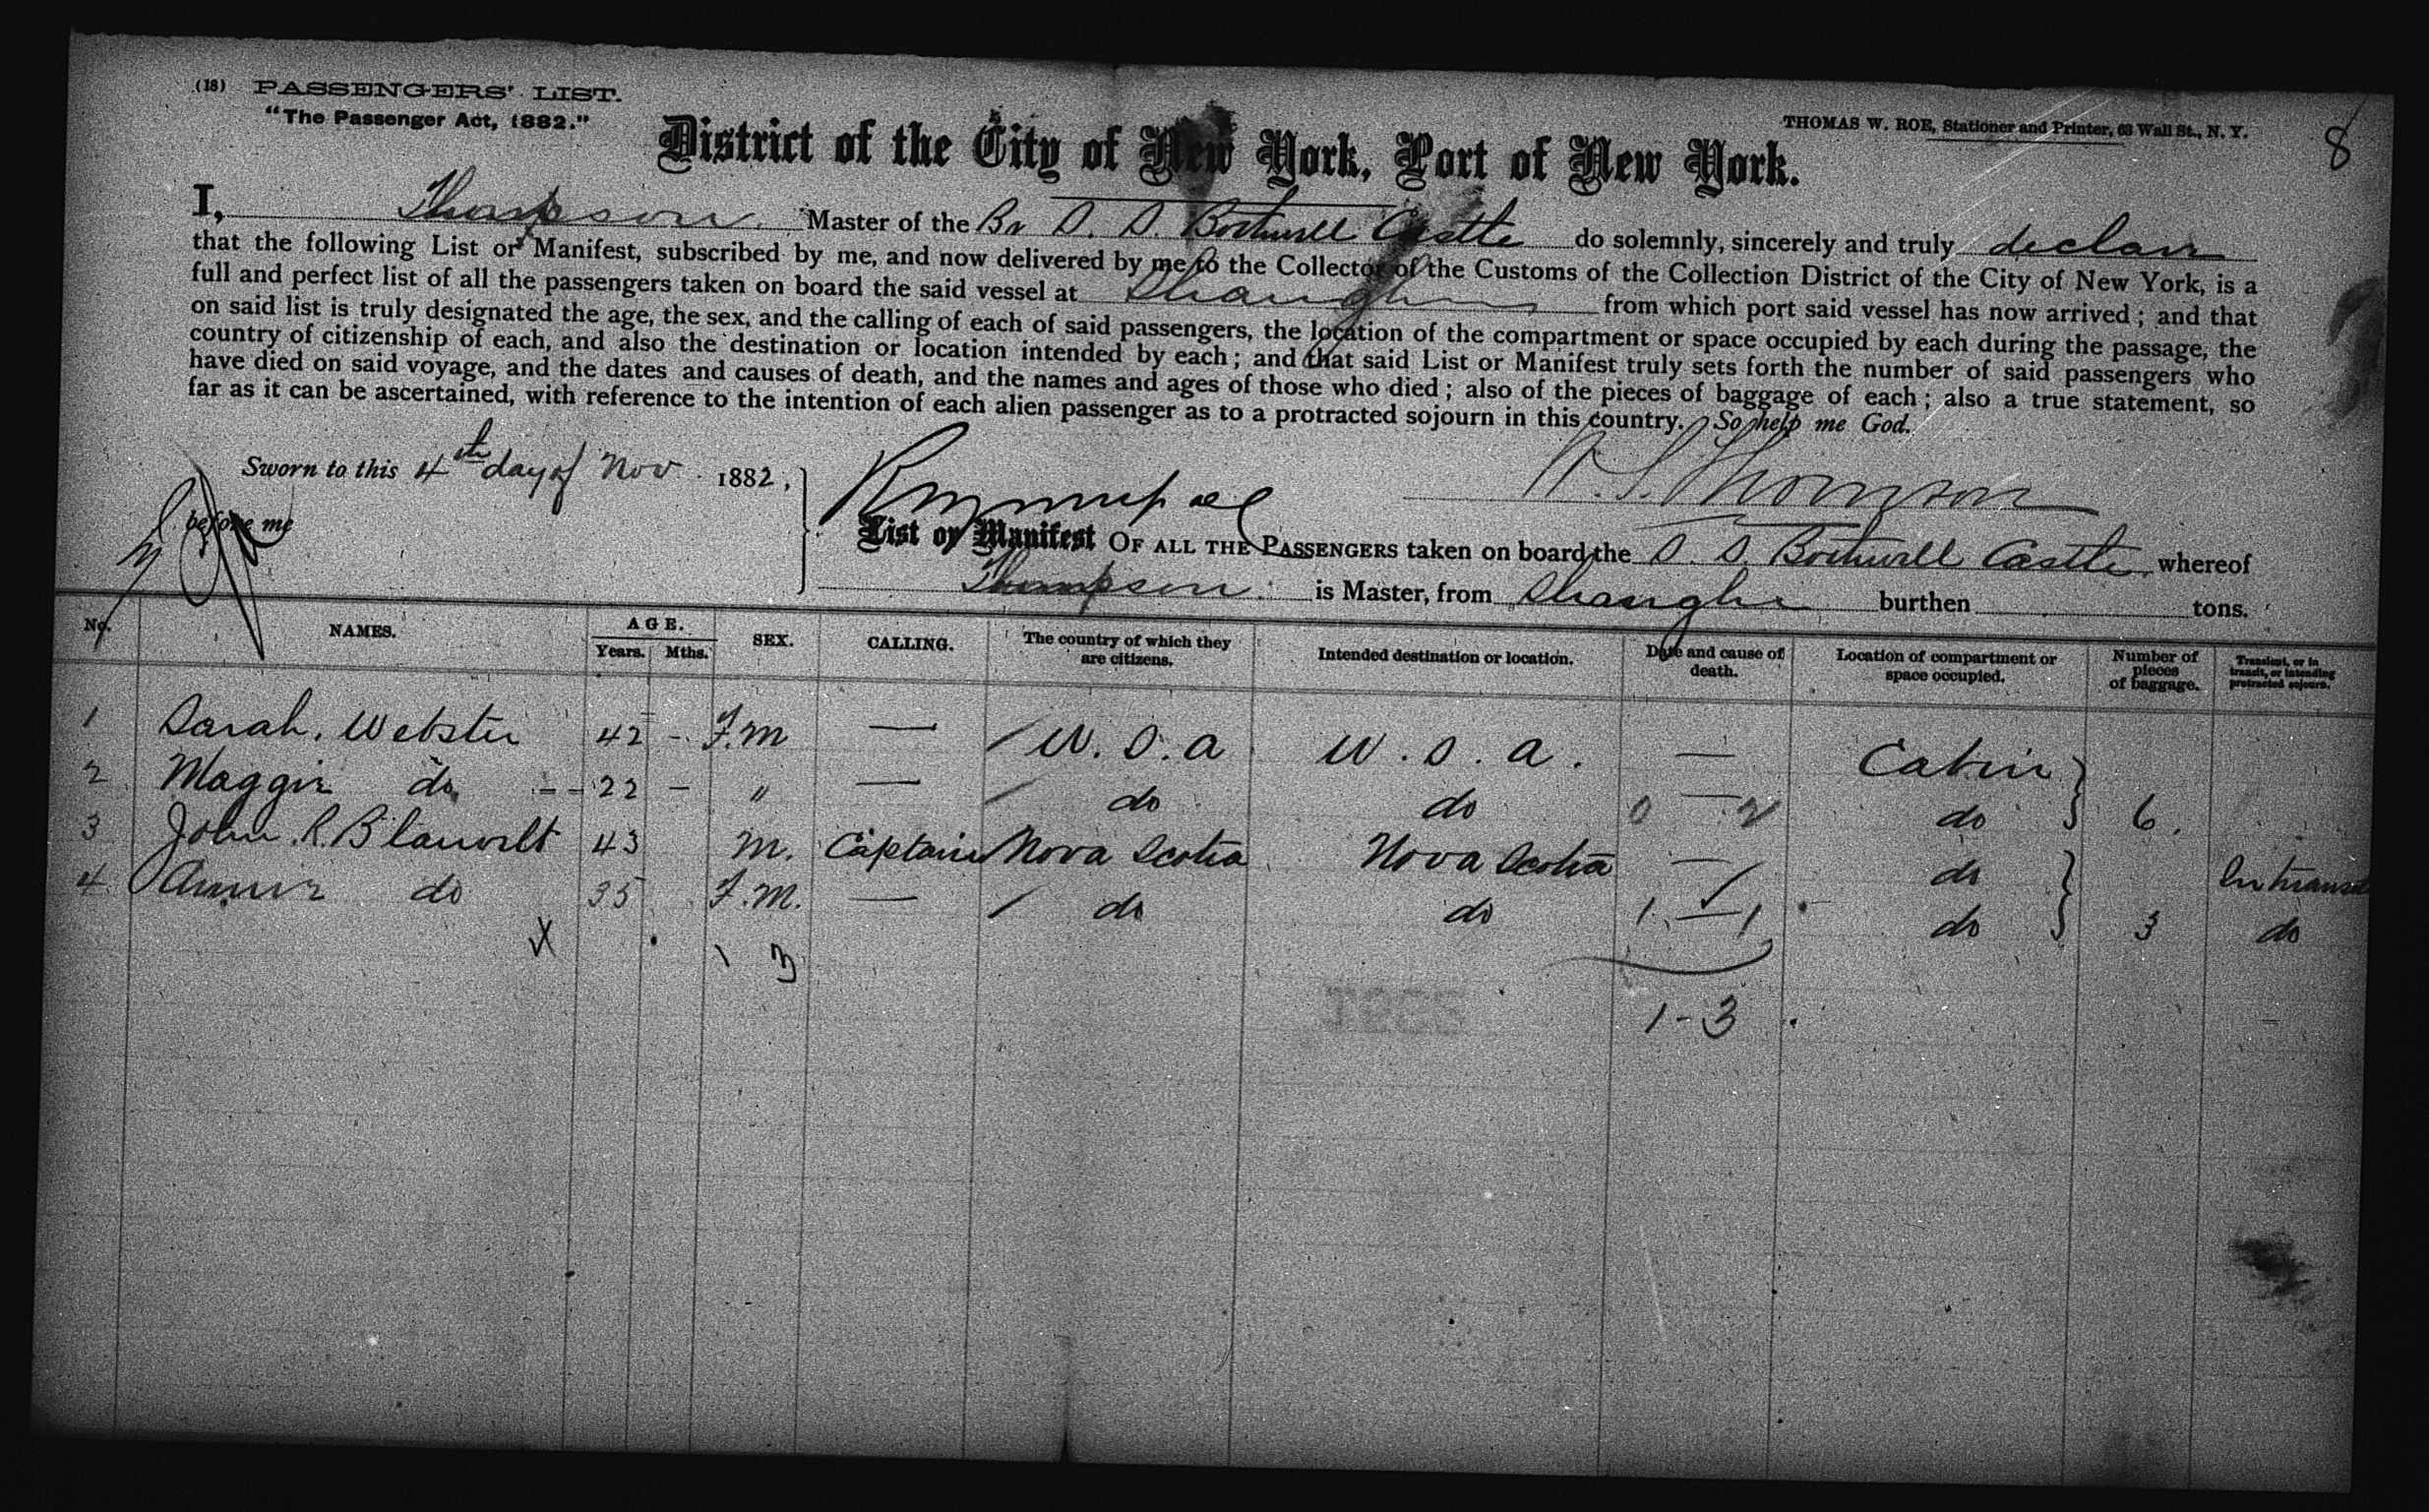 (18) PASSENGERS' LIST.
"The Passenger Act, 1882."
THOMAS W. ROE, Stationer and Printer, 63 Wall St., N. Y.
8
District of the City of New York, Port of New York.
I, Thompson. Master of the Br S. S. Bothwell Castle do solemnly, sincerely and truly declare
that the following List or Manifest, subscribed by me, and now delivered by me to the Collector of the Customs of the Collection District of the City of New York, is a
full and perfect list of all the passengers taken on board the said vessel at Shanghai from which port said vessel has now arrived; and that
on said list is truly designated the age, the sex, and the calling of each of said passengers, the location of the compartment or space occupied by each during the passage, the
country of citizenship of each, and also the destination or location intended by each; and that said List or Manifest truly sets forth the number of said passengers who
have died on said voyage, and the dates and causes of death, and the names and ages of those who died; also of the pieces of baggage of each; also a true statement, so
far as it can be ascertained, with reference to the intention of each alien passenger as to a protracted sojourn in this country. So help me God.
Sworn to this 4th day of Nov. 1882,
before me
Thomson
List or Manifest OF ALL THE PASSENGERS taken on board the S. S. Bothwell Castle whereof
Thompson is Master, from Shanghai burthen tons.
No. NAMES. AGE. Years. Mths. SEX. CALLING. The country of which they are citizens. Intended destination or location. Date and cause of death. Location of compartment or space occupied. Number of pieces of baggage. Transient, or in transit, or intending protracted sojourn.
1 Sarah. Webster 42 - F.M — U.S.A U.S.A. — Cabin
2 Maggie do 22 - " — do do — do 6.
3 John. R. Blauvelt 43 M. Captain Nova Scotia Nova Scotia — do In transit
4 Annie do 35 F.M. — do do — do 3 do
1 3
1-3